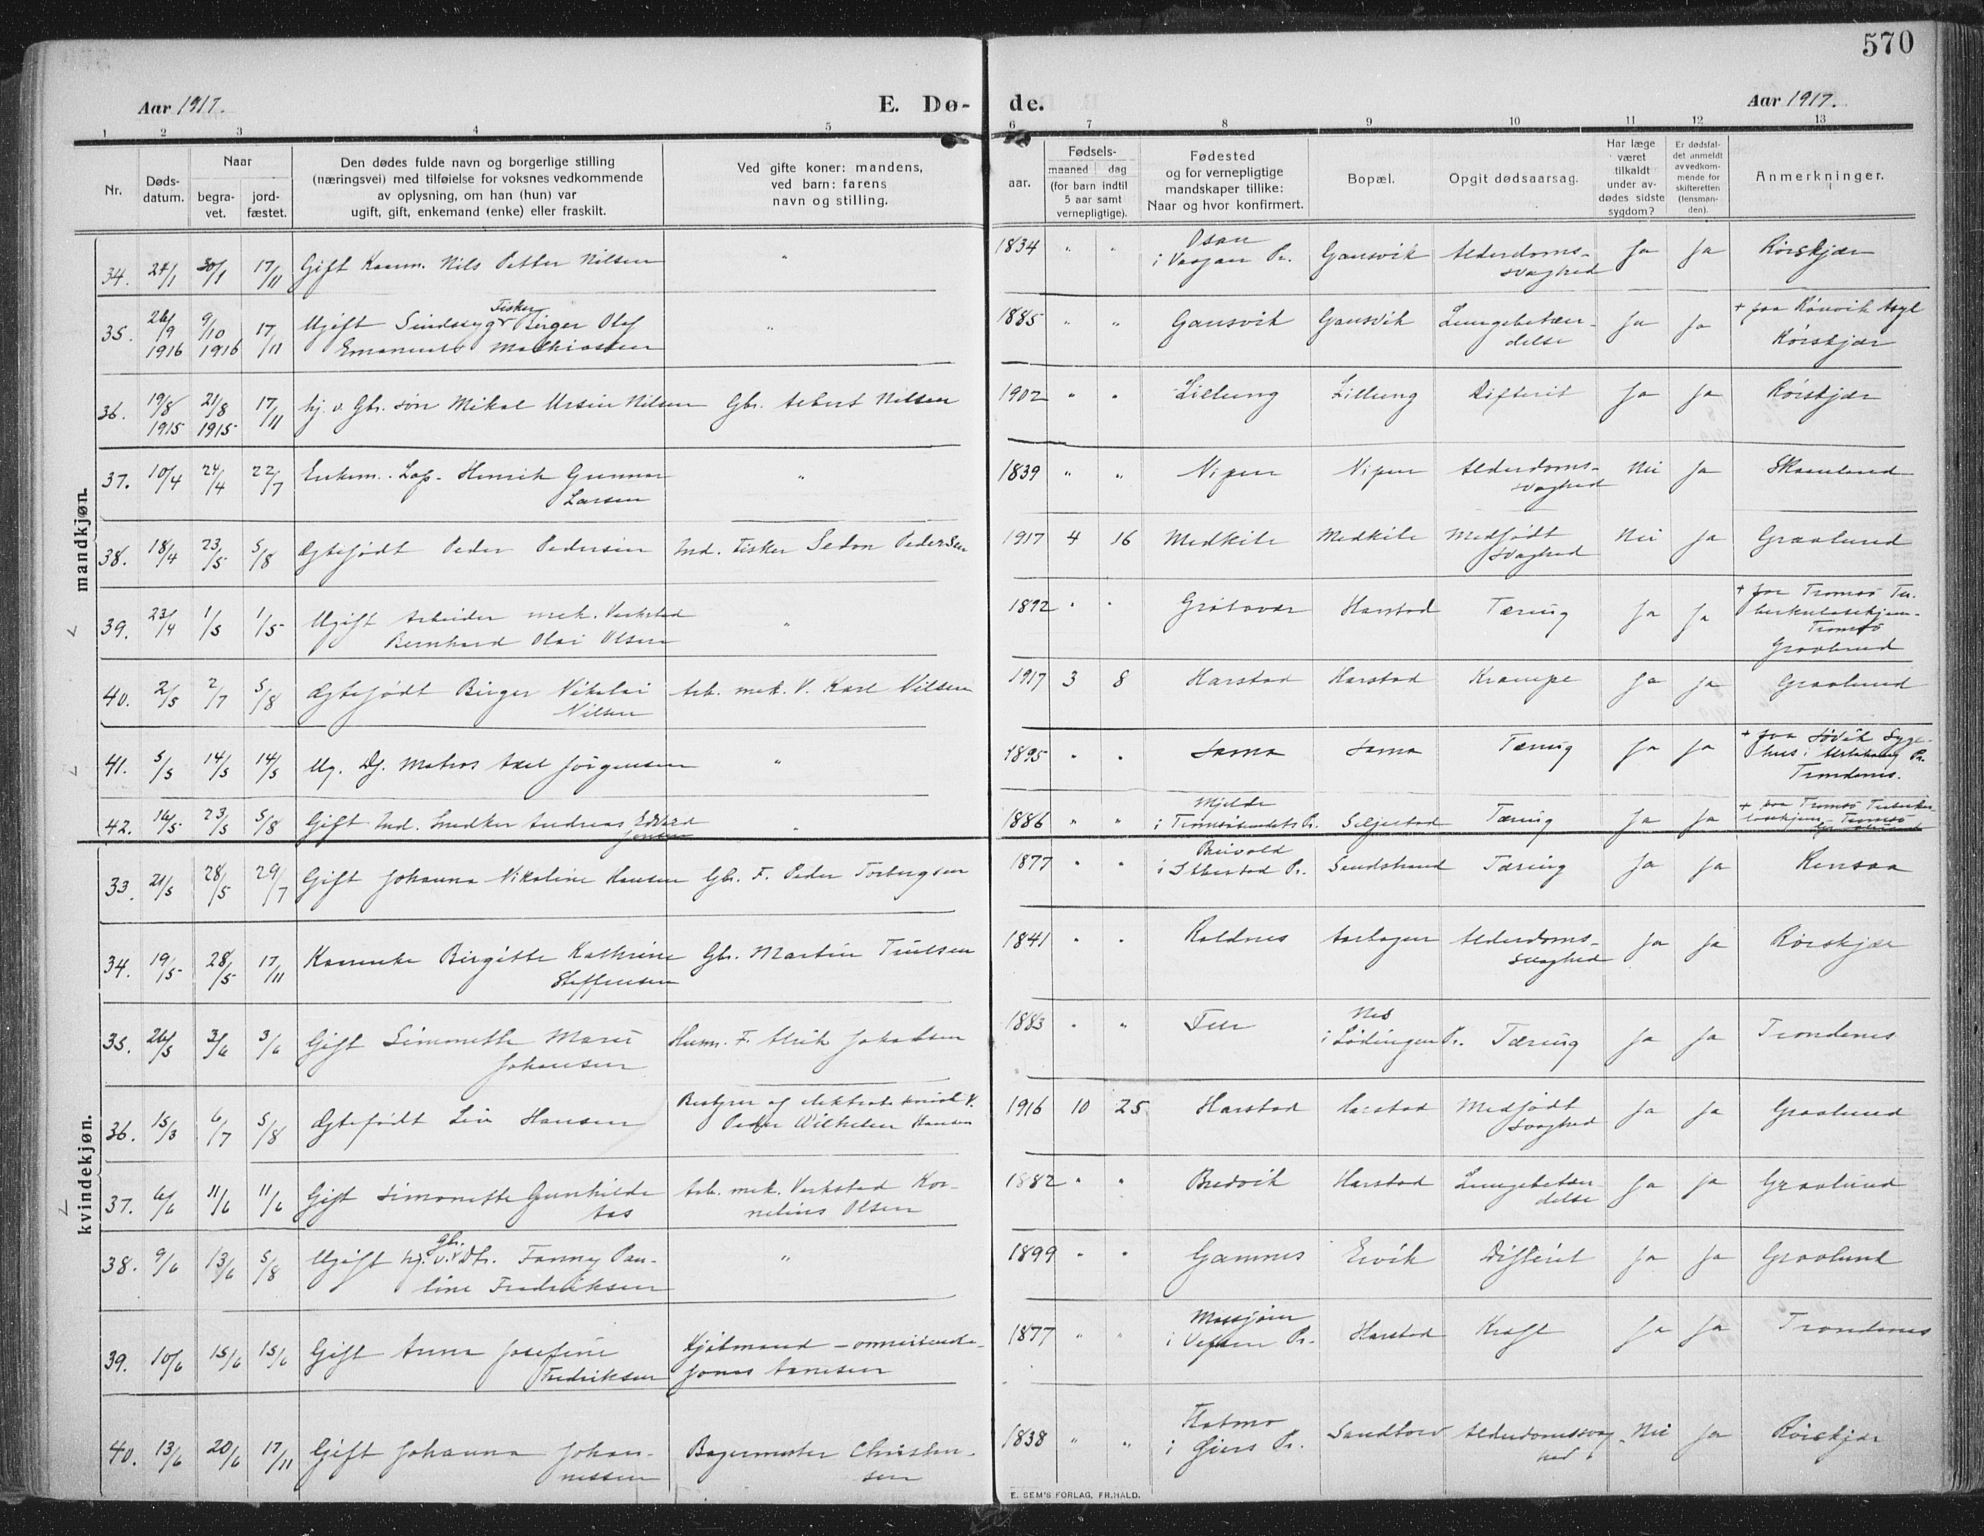 570
Aar 1917.
E. Dø-
de.
Aar 1917.
1 2 3 4 5 6 7 8 9 10 11 12 13
Nr.
Døds-
datum.
Naar
begra-
vet.
jord-
fæstet.
Den dødes fulde navn og borgerlige stilling
(næringsvei) med tilføielse for voksnes vedkommende
av oplysning, om han (hun) var
ugift, gift, enkemand (enke) eller fraskilt.
Ved gifte koner: mandens,
ved barn: farens
navn og stilling.
Fødsels-
aar.
maaned dag
(for barn indtil
5 aar samt
vernepligtige).
Fødested
og for vernepligtige
mandskaper tillike:
Naar og hvor konfirmert.
Bopæl.
Opgit dødsaarsag.
Har læge
været
tilkaldt
under av-
dødes sidste
sygdom?
Er dødsfal-
det anmeldt
av vedkom-
mende for
skifteretten
(lensman-
den).
Anmerkninger.
mandkjøn.
34. 24/1 30/1 17/11 Gift Kaarm. Nils Petter Nilsen " 1834 " " Osan
i Vaagan Pr. Gansvik Alderdoms-
svaghed Ja Ja Rørskjær
35. 26/9 1916 9/10 1916 17/11 Ugift Sindssyg Fisker Birger Olaf
Emanuel Mathiassen " 1885 " " Gansvik Gansvik Lungebetæn-
delse Ja Ja + paa Rønvik Asyl
Rørskjær
36. 19/8 1915 21/8 1915 17/11 hj. v. Gbr. søn Mikal Ursin Nilsen Gbr. Albert Nilsen 1902 " " Lillung Lillung Difterit Ja Ja Rørskjær
37. 10/4 24/4 22/7 Enkem. Lap. Henrik Gunnar
Larsen " 1839 " " Nipen Nipen Alderdoms-
svaghed Nei Ja Skaanland
38. 18/4 23/5 5/8 Ægtefødt Peder Pedersen Ind. Fisker Sedon Pedersen 1917 4 16 Medkile Medkile Medfødt
svaghed Nei Ja Graalund
39. 23/4 1/5 1/5 Ugift Arbeider mek. Verksted
Bernhard Olai Olsen " 1892 " " Grøtavær Harstad Tæring Ja Ja + paa Tromsø Tu-
berkulosehjem-
Tromsø
Graalund
40. 2/5 2/7 5/8 Ægtefødt Birger Nikolai
Nilsen Arb. mek. V. Karl Nilsen 1917 3 8 Harstad Harstad Krampe Ja Ja Graalund
41. 5/5 14/5 14/5 Ug. Matros Axel Jørgensen " 1895 " " Sama Sama Tæring Ja Ja + paa Syge-
hus i Pr.
Trondenes.
42. 16/5 23/5 5/8 Gift Ind. Snedker Andreas Edvard
Jensen " 1886 " " Mjelde
i Tromsøsundets Pr. Seljestad Tæring Ja Ja + paa Tromsø Tuberku-
losehjem - Tromsø
kvindekjøn.
33. 21/5 28/5 29/7 Gift Johanna Nikoline Hansen Gbr. F. Peder Torbergsen 1877 " " Breivold
i Ibestad Pr. Sandstrand Tæring Ja Ja Rensaa
34. 19/5 28/5 17/11 Kaarenke Birgitte Kathrine
Steffensen Gbr. Martin Trulsen 1841 " " Roldnes Aarbogen Alderdoms-
svaghed Ja Ja Rørskjær
35. 26/5 3/6 3/6 Gift Simonette Marie
Johansen Husm. F. Alrik Johansen 1883 " " Nes
i Lødingen Pr. Tæring Ja Ja Trondenes
36. 15/3 6/7 5/8 Ægtefødt Liv Hansen Bestyrer
Peder Wilhelm Hansen 1916 10 25 Harstad Harstad Medfødt
svaghed Ja Ja Graalund
37. 6/6 11/6 11/6 Gift Simonette Gunhilde
Aas Arb. mek. Verksted Kor-
nelius Olsen 1882 " " Bredvik Harstad Lungebetæn-
delse Ja Ja Graalund
38. 9/6 13/6 5/8 Ugift hj. v. Gbr. Dtr. Fanny Pau-
line Fredriksen " 1899 " " Gamnes Ervik Difterit Ja Ja Graalund
39. 10/6 15/6 15/6 Gift Anna Josefine
Fredriksen Kjøbmand - omreisende-
Jonas Arnesen 1877 " " Mosjøen
i Vefsen Pr. Harstad Kræft Ja Ja Trondenes
40. 13/6 20/6 17/11 Gift Johanna Johan-
nessen Bagermester Christen-
sen 1838 " " i Giers Pr. Sandtorv Alderdomssvag
hed. Nei Ja Rørskjær
E. SEM'S FORLAG, FR.HALD.